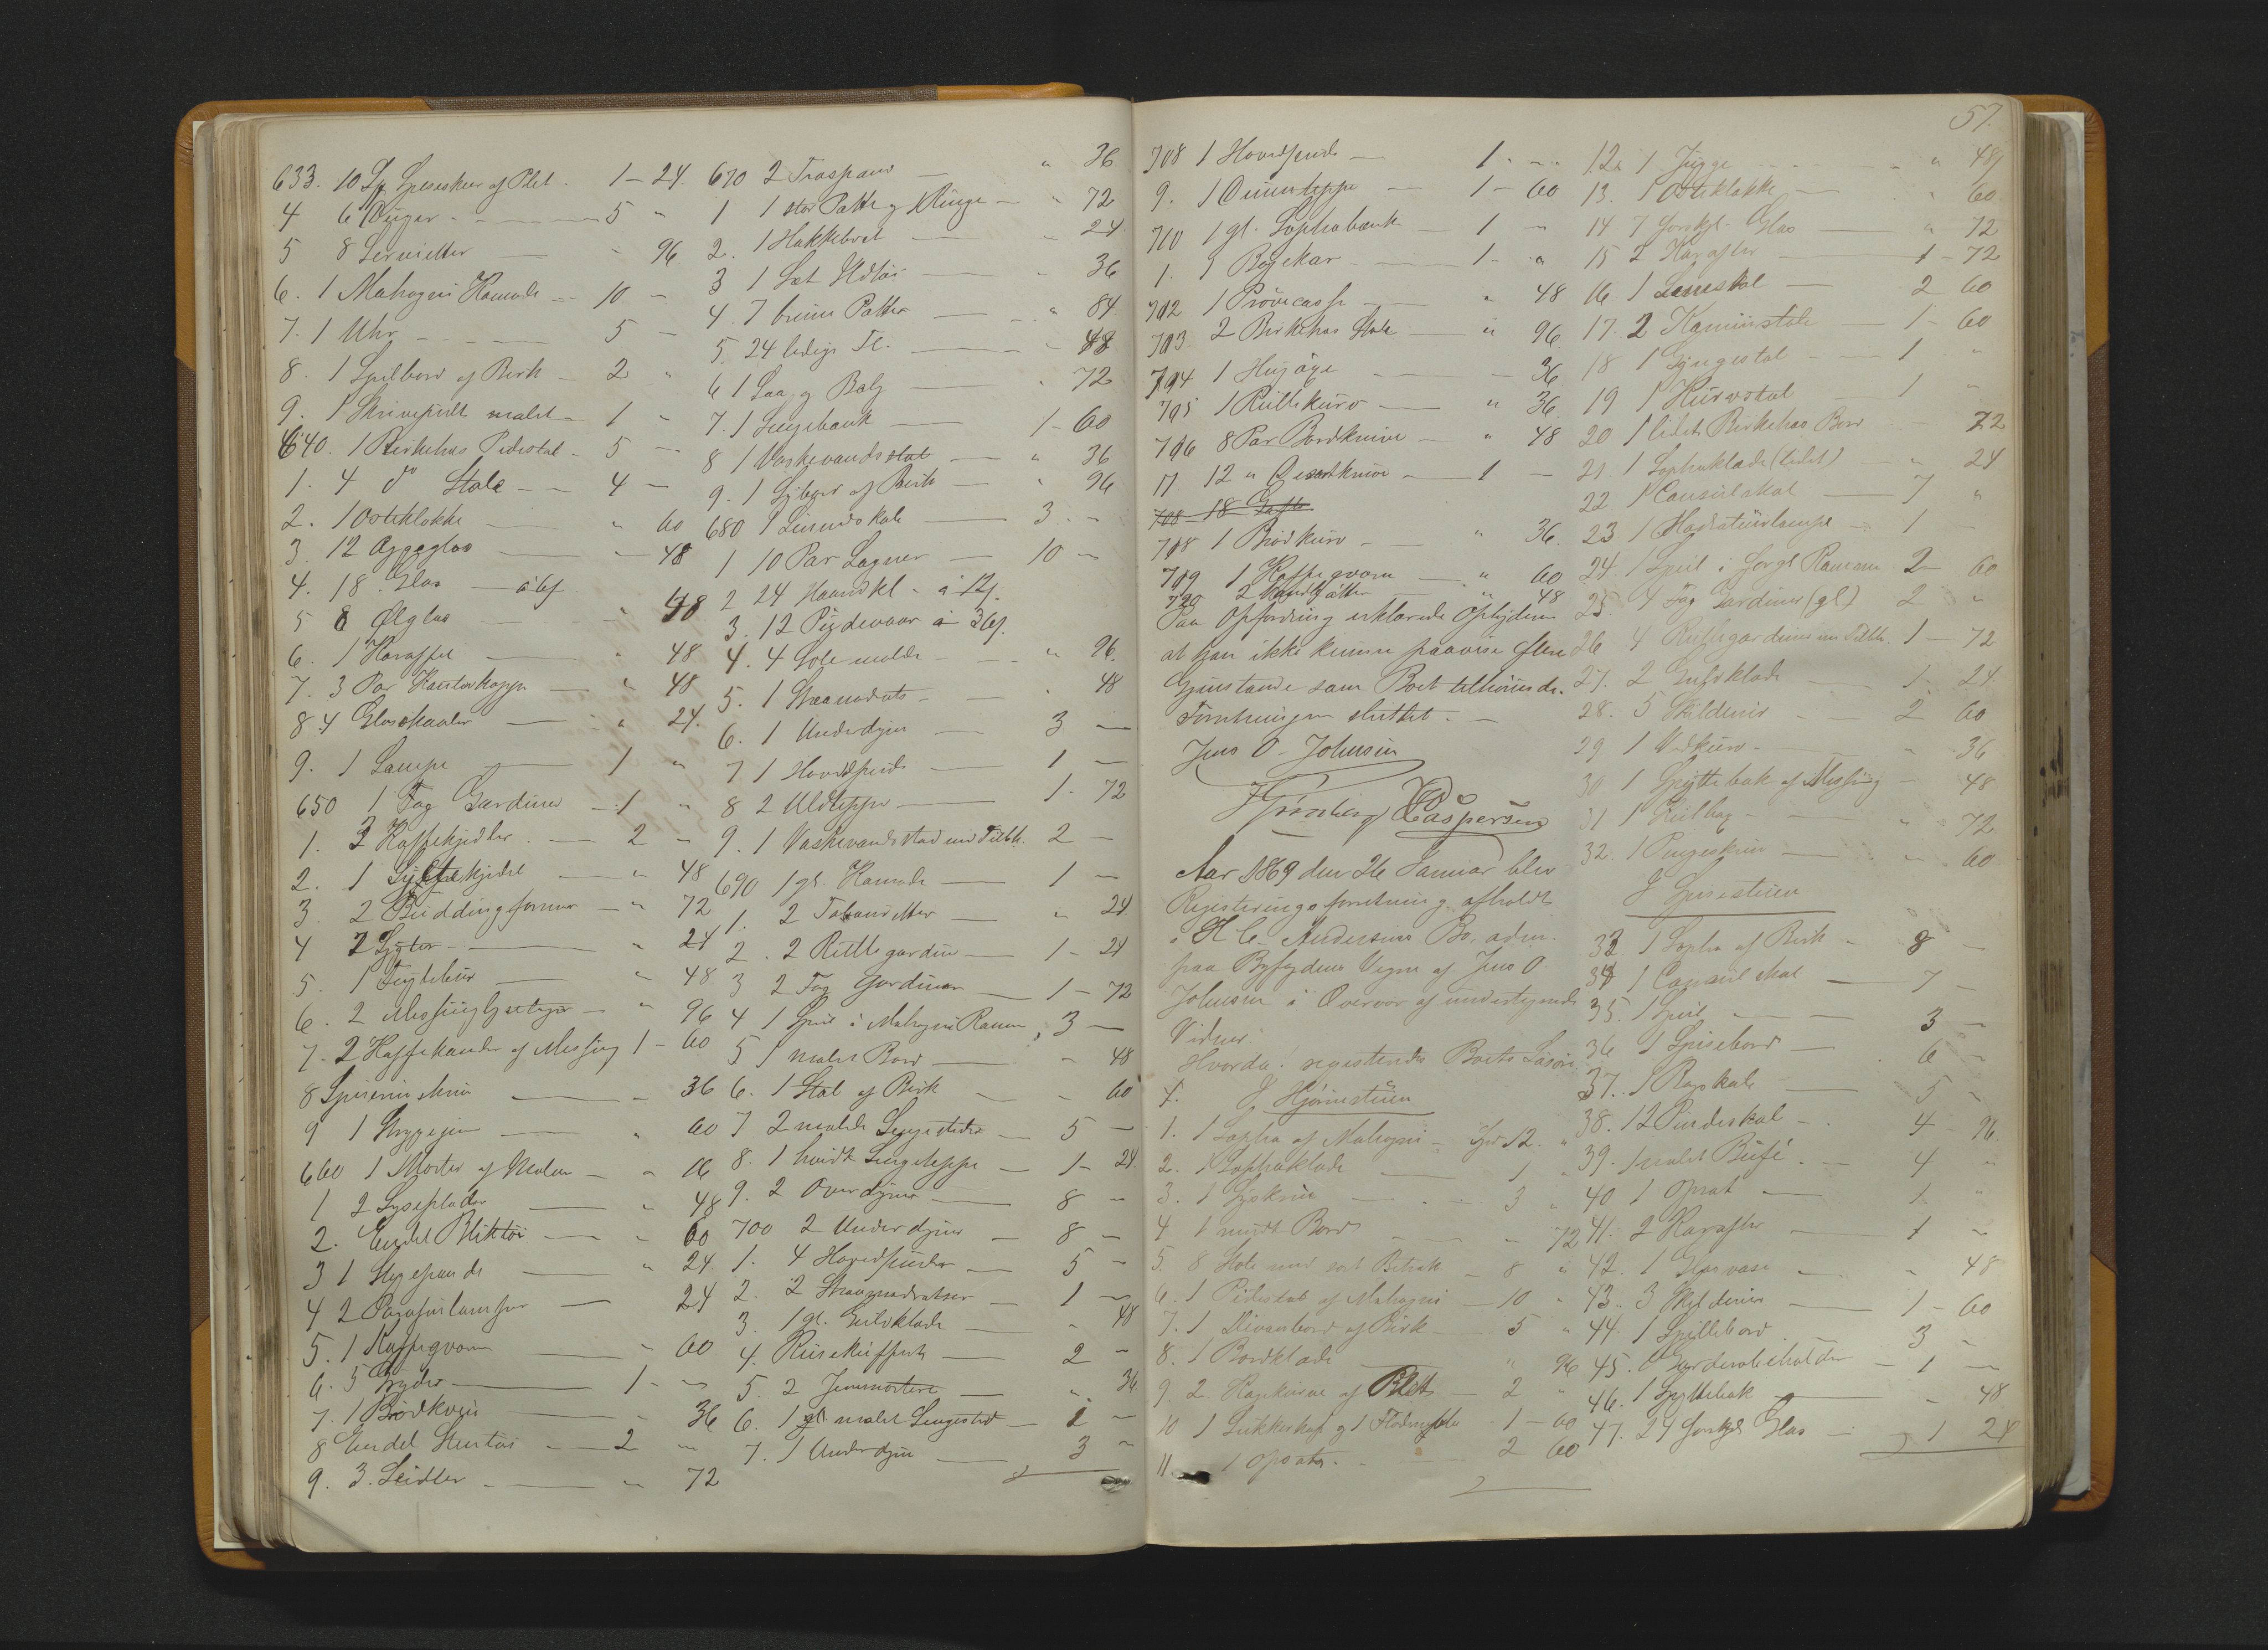 633. 10 Sp. Speseskeer af Plet. 1 - 24.
4 6 Duger - 5 "
5 8 Servietter - " 96
6. 1 Mahogni Komode - 10 -
7. 1 Uhr - 5 -
8. 1 Spilbord af Birk - 2 "
9. 1 Skrivepult malet - 1 "
640. 1 Birkehus Pidestal - 5 -
1. 4 do Stole - 4 -
2. 1 Osteklokke - " 60
3. 12 Æggeglas - " 48
4. 18 Glas - à 6 ß
5 8 Ølglas - " 48
6. 1 Karaffel - " 48
7. 3 Par Kopper - " 48
8. 4 Glasskaaler - " 24.
9. 1 Lampe - 1 "
650 1 Fag Gardiner - 1 "
1. 3 Kaffekjedler - 2 -
2. 1 kjedel - " 48
3 2 Buddingformer - " 72
4 2 - " 24
5. 1 - " 48
6. 2 Messinglysestager - " 96
7. 2 Kaffekander af Messing 1 - 60
8 - " 36
9 1 Strygejern - " 60
660 1 Morter af Malm - " 16
1 2 Lyseplader - " 48
2. Endel Bliktøi - " 60
3 1 Stegepande - " 24
4 2 Parafinlamper - 24
5. 1 Kaffeqværn - " 60
6. 5 Gryder - 1 - "
7. 1 - 36
8 Endel Stentøi - 2 -
9. 3. - " 72
670 2 - " 36
1 1 stor Potte og Ringe - " 72
2. 1 Hakkebret - " 24
3 1 Sæt Ildtøi - " 36
4. 7 brune Potter - " 84
5. 24 ledige Fl. - " 48
6 1 Saa og Balje - " 72
7. 1 Sengebænk - 1 - 60
8 1 Vaskevandsstol - " 36
9. 1 Sybord af Birk - " 96
680 1 - 3 -
1 10 Par Lagner - 10 -
2 24 Haandkl. à 12 ß.
3. 12 Pudevaar à 36 ß.
4. 4 - " 96.
5. 1 Straamadrats - " 48
6. 1 Underdyne - 3 -
7 1 Hovedpude - 1 -
8 2 Uldtepper - 1 - 72
9. 1 Vaskevandsstad med Tilbh. 2 -
690 1 gl. Komode - 1 -
1. 2 Tabouretter - " 24
2. 2 Rullegardin - 1 - 24
3 2 Fag Gardiner - 1 - 72
4 1 Speil i Mahogni Ramme, 3 -
5 1 malet Bord - " 48
6. 1 Stol af Birk - " 60
7 2 malede Sengesteder - 5 -
8. 1 hvidt Sengeteppe - 1 - 24.
9. 2 Overdyner - 8 -
700 2 Underdyner - 8 -
1. 4 Hovedpuder - 5 -
2. 2 Straamadratser - 1 -
3. 1 gl. Gulvklæde - " 48
4. Reisekuffert - 2 -
5. 2 - " 36
6. 1 gl. malet Sengested - 1 -
7. 1 Underdyne - 3 -
57.
708 1 Hovedpude - 1 - "
9. 1 - 1 - 60
710 1 gl. Sophabænk - 1 - "
1. 1 Bøjekar - 1 - "
712 1 - " 48
713 2 Birkehus Stole - " 96
714 1 - " 36
715 1 Rullekurv - " 36
716 8 Par Bordknive - " 48
17 12 " Desertknive - 1 -
708 18 Gafle
718 1 Brødkurv - " 36.
719 1 Kaffeqværn - " 60
720 2 - " 48
Paa Opfordring erklærede Opbyderen
at han ikke kunne paavise flere
Gjenstande som Boet tilhørende.
Forretningen sluttet. -
Jens O. Johnsen
Caspersen
Aar 1869 den 26 Januar blev
Registeringsforretning afholdt
i H C Andersens Bo, adm.
paa Byfogdens Vegne af Jens O
Johnsen i Overvær af undertegnede
Vidner.
Hvorda registeredes Boets Løsøre
I Hjørnestuen
1. 1 Sopha af Mahogni - Spd 12. "
2. 1 Sophaklæde - 1 "
3. 1 Syskrin - 3 "
4 1 rundt Bord - " 72
5. 8 Stole med sort Betræk - 8 "
6. 1 Pidestal af Mahogni - 10 "
7. 1 Divanbord af Birk - 5 "
8. 1 Bordklæde - " 96
9. 2 Kagekurve af Plet - 2 "
10 1 Sukkerkop og 1 Flødemugge - 1 - 60
11 1 Opsats. - 2 60
12. 1 Mugge - " 48
13. 1 Osteklokke - " 60
14. 7 forskjl. Glas - " 72
15 2 Karafler - 1 - 72
16 1 Lænestol - 2 60
17. 2 Kaminstole - 1 - 60
18 1 Gyngestol - 1 "
19 1 Kurvstol - 1 "
20 1 lidet Birkehus Bord - 72
21. 1 Sophaklæde (lidet) - " 24
22. 1 Consolskal - 7 "
23 1 Moderatørlampe - 1 -
24. 1 Speil i forgl Ramme 2 - 60
25 4 Fag Gardiner (gl) 2 "
26 4 Rullegardiner med Tilbh. 1 - 72
27. 2 Gulvklæde 1 - 24
28. 5 Skilderier - 2 60
29 1 Vedkurv - " 36
30 1 Spyttebak af Messing - 48
31 1 - " 72
32. 1 Pengeskrin - " 60
I Spisestuen
33. 1 Sopha af Birk - 8 -
34 1 Consol skal - 7 -
35. 1 Speil - 3 -
36 1 Spisebord - 6 -
37. 1 - 5 -
38. 12 Pindestol - 4 - 96.
39. 1 malet Büfé. - 4 "
40 1 Opsat - 1. "
41. 2 Karafler - 1 -
42. 1 Glasvase - " 48
43. 3 Skilderier - 1 - 60
44. 1 Spillebord - 3 -
45. 1 Garderobeholder - 1 -
46. 1 Spyttebak - " 48
47. 24 forskjl Glas - 1 24